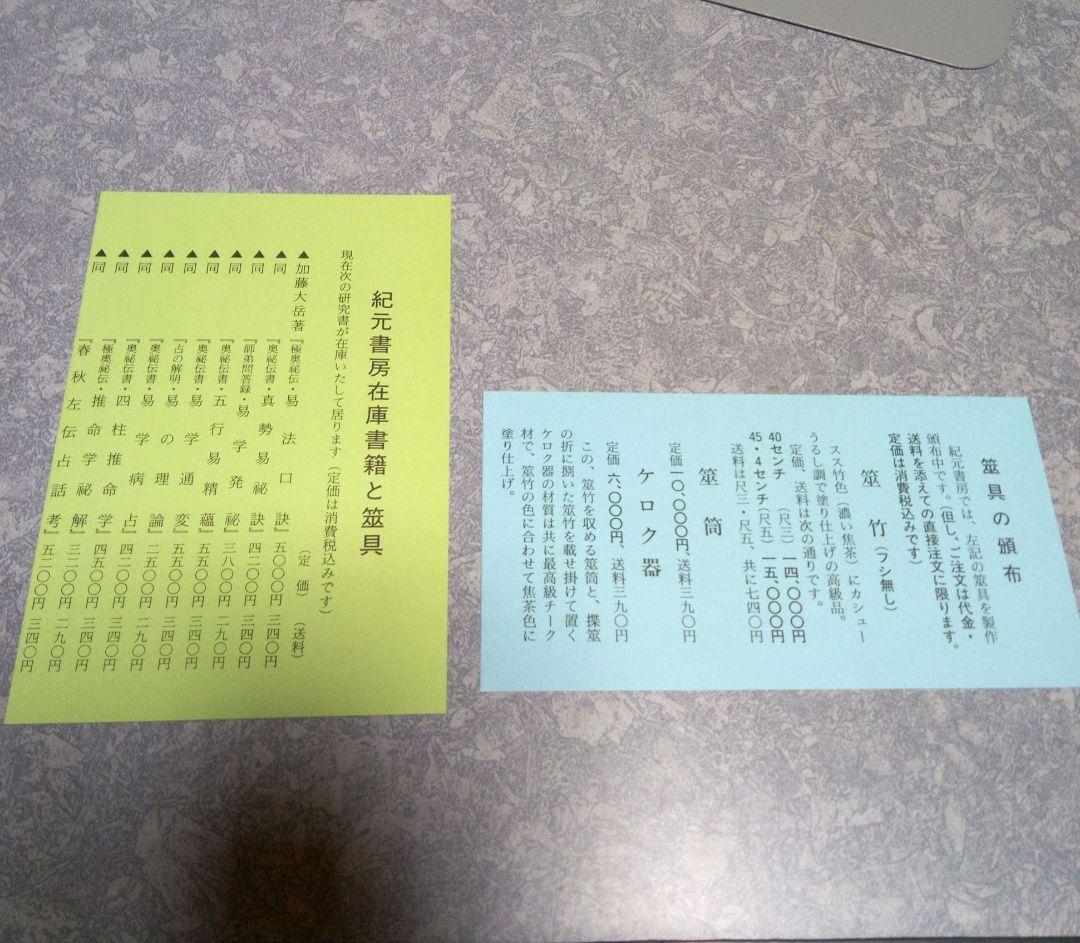 紀元書房在庫書籍と筮具
現在次の研究書が在庫いたして居ります(定価は消費税込みです)
(定価)(送料)
▲加藤大岳著『極奥祕伝・易法口訣』五〇〇〇円 三四〇円
▲同『奥祕伝書・真勢易祕訣』四二〇〇円 三四〇円
▲同『師弟問答録・易学発祕』三八〇〇円 二九〇円
▲同『奥祕伝書・五行易精蘊』五五〇〇円 三四〇円
▲同『奥祕伝書・易学通変』五五〇〇円 三四〇円
▲同『占の解明・易の理論』二五〇〇円 二九〇円
▲同『奥祕伝書・易学病占』四二〇〇円 三四〇円
▲同『奥祕伝書・四柱推命学』四五〇〇円 三四〇円
▲同『極奥祕伝・推命学祕解』三二〇〇円 二九〇円
▲同『春秋左伝占話考』五二〇〇円 三四〇円
筮具の頒布
紀元書房では、左記の筮具を製作
頒布中です。(但し、ご注文は代金・
送料を添えての直接注文に限ります。
定価は消費税込みです)
筮竹(フシ無し)
スス竹色(濃い焦茶)にカシュー
うるし調で塗り仕上げの高級品。
定価、送料は次の通りです。
40センチ(尺三)一四、〇〇〇円
45・4センチ(尺五)一五、〇〇〇円
送料は尺三・尺五、共に七四〇円
筮筒
定価一〇、〇〇〇円、送料三九〇円
ケロク器
定価六、〇〇〇円、送料三九〇円
この、筮竹を収める筮筒と、揲筮
の折に捌いた筮竹を載せ掛けて置く
ケロク器の材質は共に最高級チーク
材で、筮竹の色に合わせて焦茶色に
塗り仕上げ。